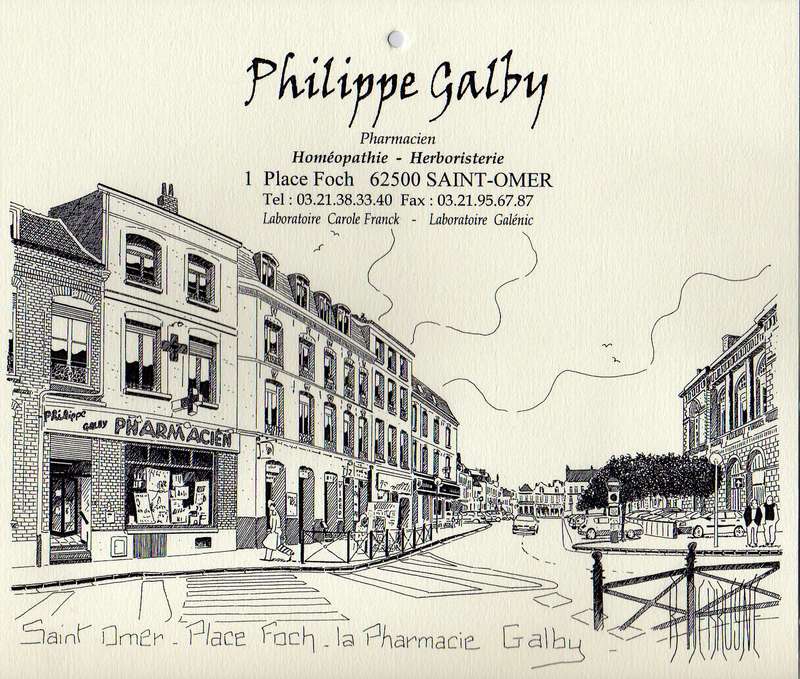 Philippe Galby
Pharmacien
Homéopathie - Herboristerie
1 Place Foch 62500 SAINT-OMER
Tel : 03.21.38.33.40 Fax : 03.21.95.67.87
Laboratoire Carole Franck - Laboratoire Galénic
Philippe
GALBY
PHARMACIEN
Saint Omer - Place Foch - la Pharmacie Galby